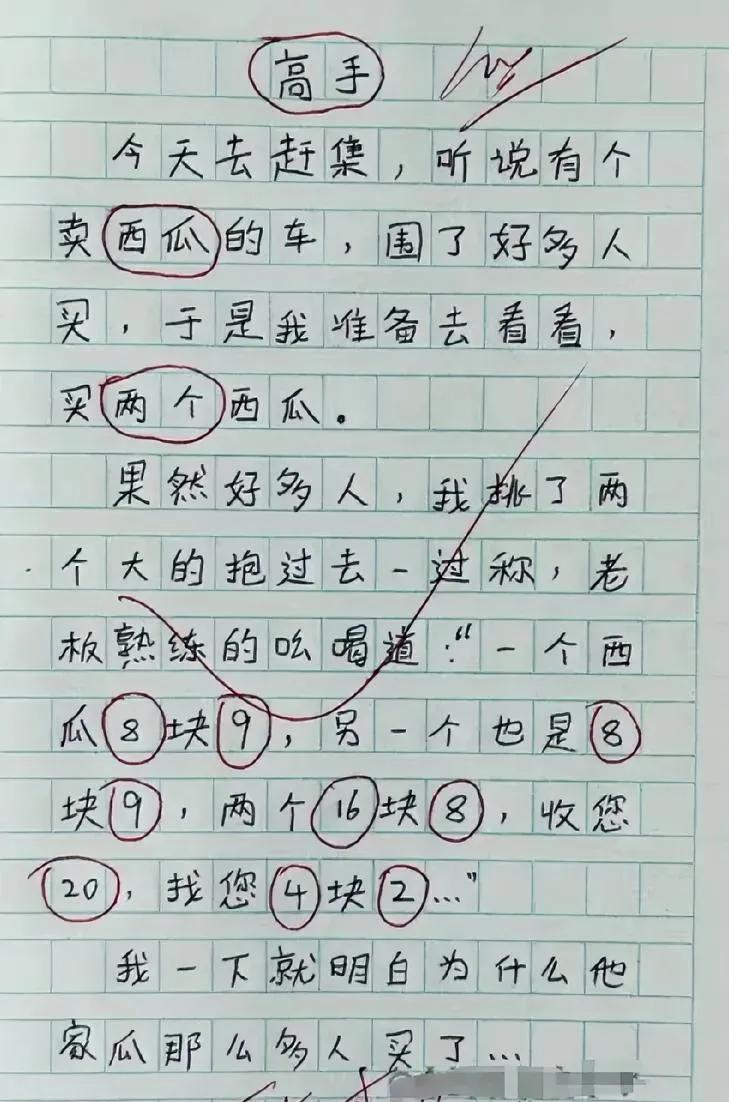 高手
今天去赶集，听说有个
卖西瓜的车，围了好多人
买，于是我准备去看看，
买两个西瓜。
果然好多人，我挑了两
个大的抱过去一过称，老
板熟练的吆喝道：“一个西
瓜8块9，另一个也是8
块9，两个16块8，收您
20，找您4块2…”
我一下就明白为什么他
家瓜那么多人买了…